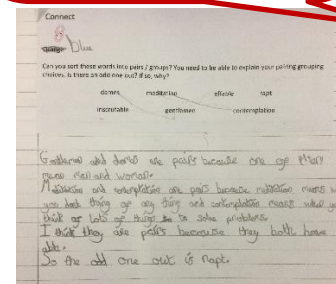 Connect
blue
Can you sort these words into pairs / groups? You need to be able to explain your pairing grouping
choices. Is there an odd one out? If so, why?
dames meditation affable rapt
inscrutable gentlemen contemplation
and dames are pairs because one of them
mens man and woman.
and contemplation are pairs because meditation means
you dont thing of any thing and contemplation means when you
think of lots of things to solve problems.
I think they are pairs because they both have
able.
So the odd one out is rapt.